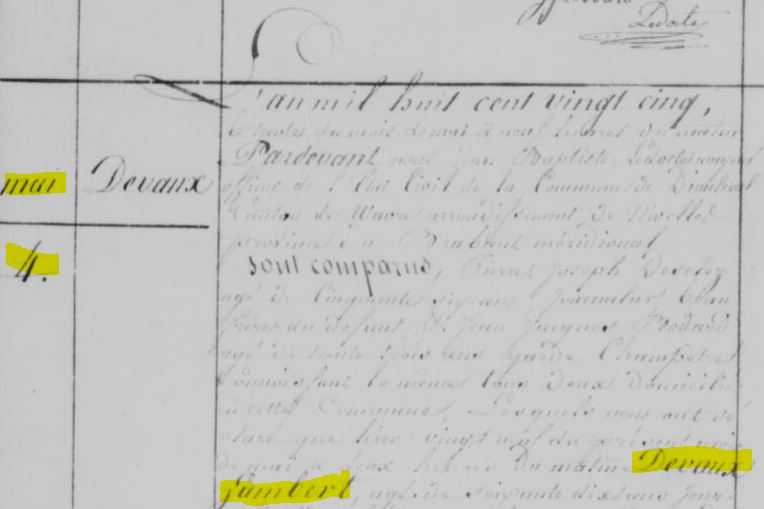 Ledocte
L'an mil huit cent vingt cinq,
le trente du mois de mai à neuf heures du matin
Pardevant nous Jean Baptiste Ledocte
officier de l'Etat Civil de la Commune de Dion
Canton de Wavre arrondissement de Nivelles
province du Brabant méridional
mai
Devaux
4.
sont comparus, Pierre Joseph
agé de Cinquante six ans Journalier beau
frère du defunt & Jean Jacques
agé de trente trois ans garde Champetre
Connoissant le même tous deux domicilié
en cette Commune, Lesquels nous ont dé
claré que hier vingt neuf du présent mois
de mai a deux heures du matin Devaux
Lambert, agé de soixante dix ans jour